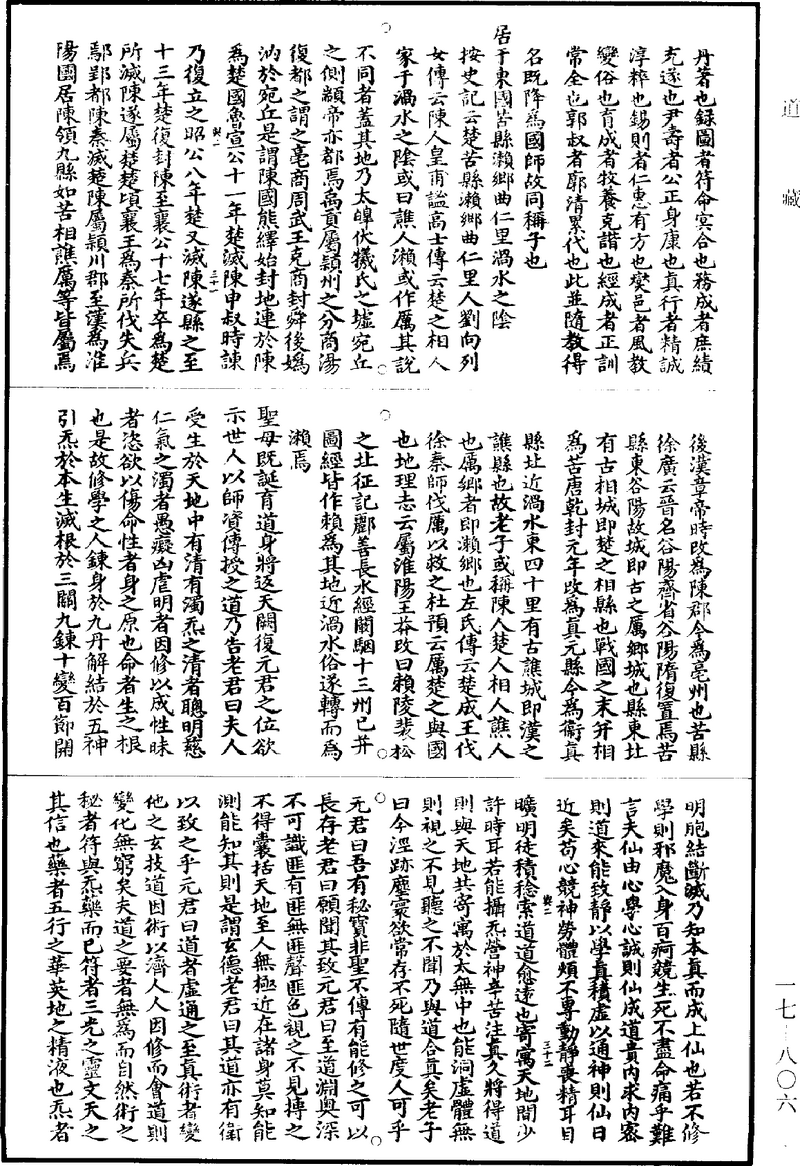 道藏
丹著也錄圖者符命冥合也務成者庶績
克遂也尹壽者公正身康也真行者精誠
淳粹也錫則者仁惠有方也爕邑者風教
變俗也育成者牧養克諧也經成者正訓
常全也郭叔者廓清累代也此並隨教得
名既降為國師故同稱子也
居于東國苦縣瀨鄉曲仁里渦水之陰
按史記云楚苦縣瀨鄉曲仁里人劉向列
女傳云陳人皇甫謐高士傳云楚之相人
家于渦水之陰或曰譙人瀨或作厲其說
不同者蓋其地乃太皥伏犧氏之墟宛丘
之側顓帝亦都焉禹貢屬潁州之分商湯
復都之謂之亳商周武王克商封舜後媯
汭於宛丘是謂陳國熊繹始封地連於陳
為楚國魯宣公十一年楚滅陳申叔時諫
乃復立之昭公八年楚又滅陳遂縣之至
十三年楚復封陳至襄公十七年卒為楚
所滅陳遂屬楚楚頃襄王為秦所伐失兵
鄢郢都陳秦滅楚陳屬潁川郡至漢為淮
陽國居陳領九縣如苦相譙厲等皆屬焉
後漢章帝時改為陳郡今為亳州也苦縣
徐廣云晉名谷陽齊省谷陽隋復置焉苦
縣東谷陽故城即古之厲鄉城也縣東北
有古相城即楚之相縣也戰國之末并相
為苦唐乾封元年改為真元縣今為衞真
縣北近渦水東四十里有古譙城即漢之
譙縣也故老子或稱陳人楚人相人譙人
也厲鄉者即瀨鄉也左氏傳云楚成王伐
徐秦師伐厲以救之杜預云厲楚之與國
也地理志云屬淮陽王莽改曰賴陵裴松
之北征記酈善長水經闞駰十三州已并
圖經皆作賴為其地近渦水俗遂轉而為
瀨焉
聖母既誕育道身將返天闕復元君之位欲
示世人以師資傳授之道乃告老君曰夫人
受生於天地中有清有濁炁之清者聰明慈
仁氣之濁者愚癡凶虐明者因修以成性昧
者恣欲以傷命性者身之原也命者生之根
也是故修學之人鍊身於九丹解結於五神
引炁於本生滅根於三關九鍊十變百節開
明胞結斷滅乃知本真而成上仙也若不修
學則邪魔入身百痾競生死不盡命痛乎難
言夫仙由心學心誠則仙成道貴內求內密
則道來能致靜以學真積虛以通神則仙日
近矣苟心競神勞體煩不專動靜喪精耳目
曠明徒積稔索道道愈遠也寄寓天地間少
許時耳若能攝炁營神辛苦注真久將得道
則與天地共寄寓於太無中也能洞虛體無
則視之不見聽之不聞乃與道合真矣老子
曰今淫跡塵寰欲常存不死隨世度人可乎
元君曰吾有秘寶非聖不傳有能修之可以
長存老君曰願聞其致元君曰至道淵奧深
不可識匪有匪無匪聲匪色視之不見摶之
不得囊括天地至人無極近在諸身莫知能
測能知其則是謂玄德老君曰其道亦有術
以致之乎元君曰道者虛通之至真術者變
他之玄技道因術以濟人人因修而會道則
變化無窮矣夫道之要者無為而自然術之
秘者符與炁藥而已符者三光之靈文天之
其信也藥者五行之華英地之精液也炁者
一七—八〇六